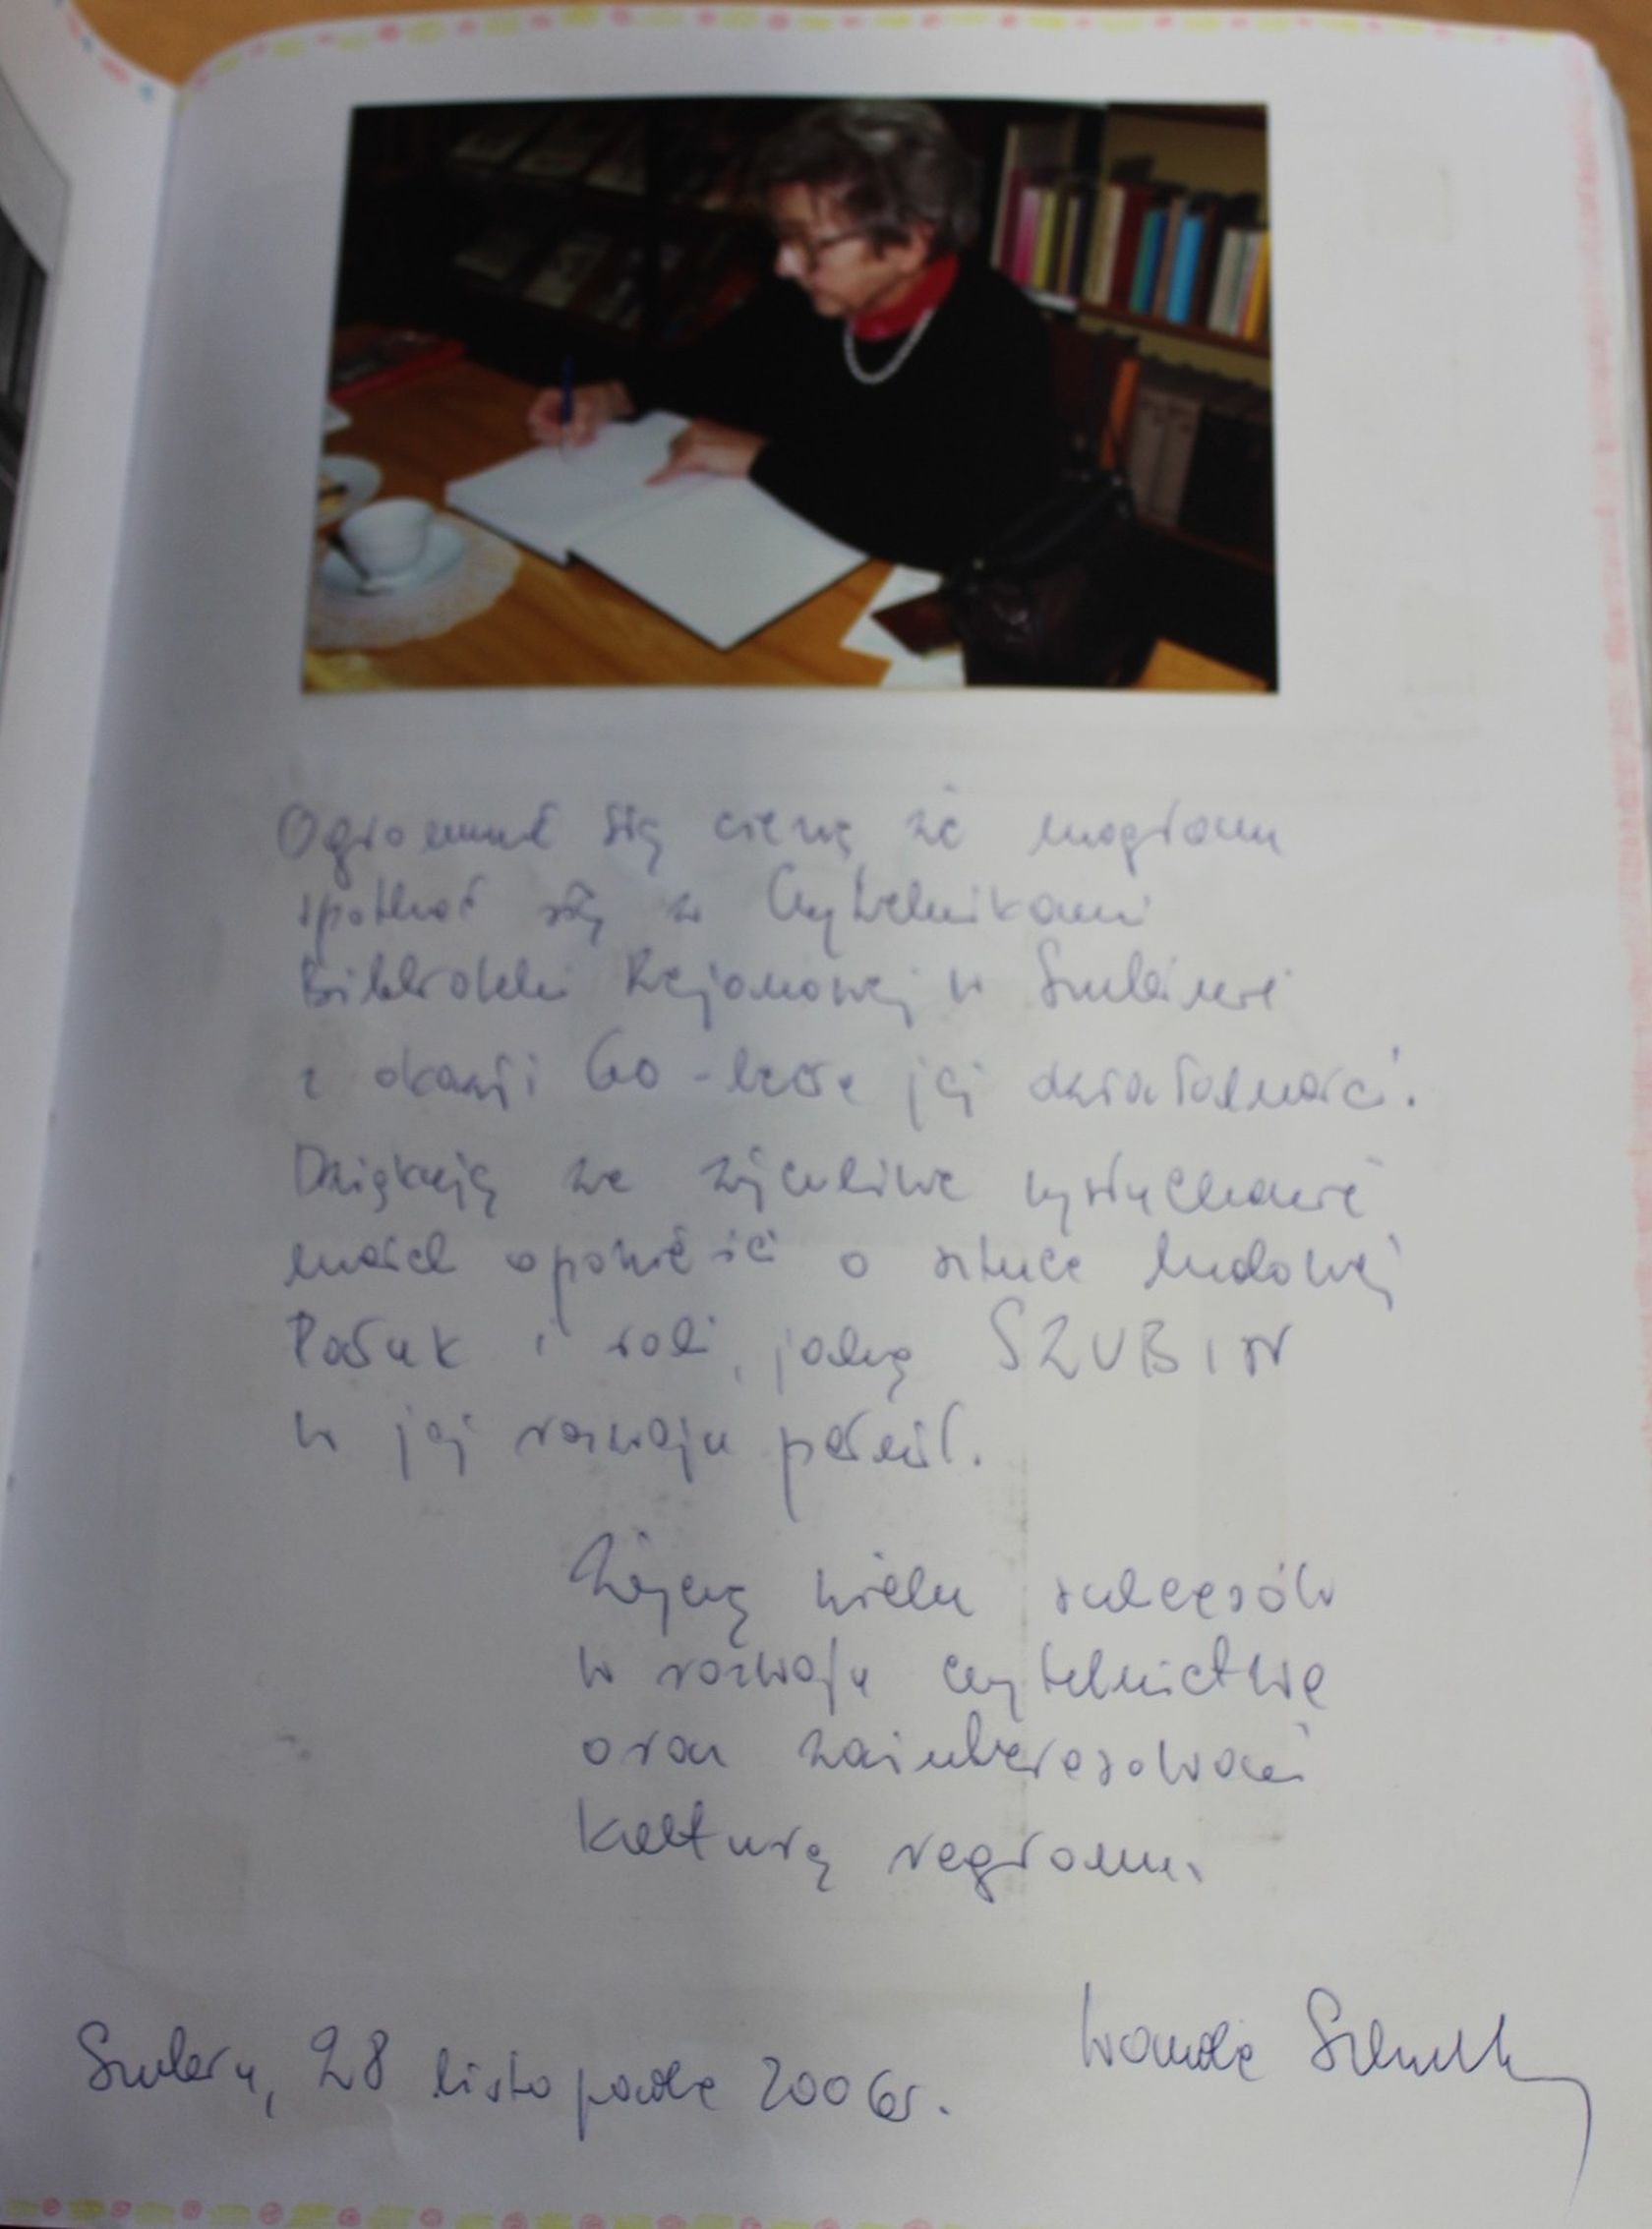 Ogromnie się cieszę, że mogłam
spotkać się z Czytelnikami
Biblioteki Rejonowej w Szubinie
z okazji 60-lecia jej działalności.
Dziękuję za życzliwe wysłuchanie
moich opowieści o sztuce ludowej
Pałuk i roli, jaką SZUBIN
w jej rozwoju pełnił.
Życzę wielu sukcesów
w rozwoju czytelnictwa
oraz zainteresowań
kulturą regionu.
Wanda
Szubin, 28 listopada 2006 r.